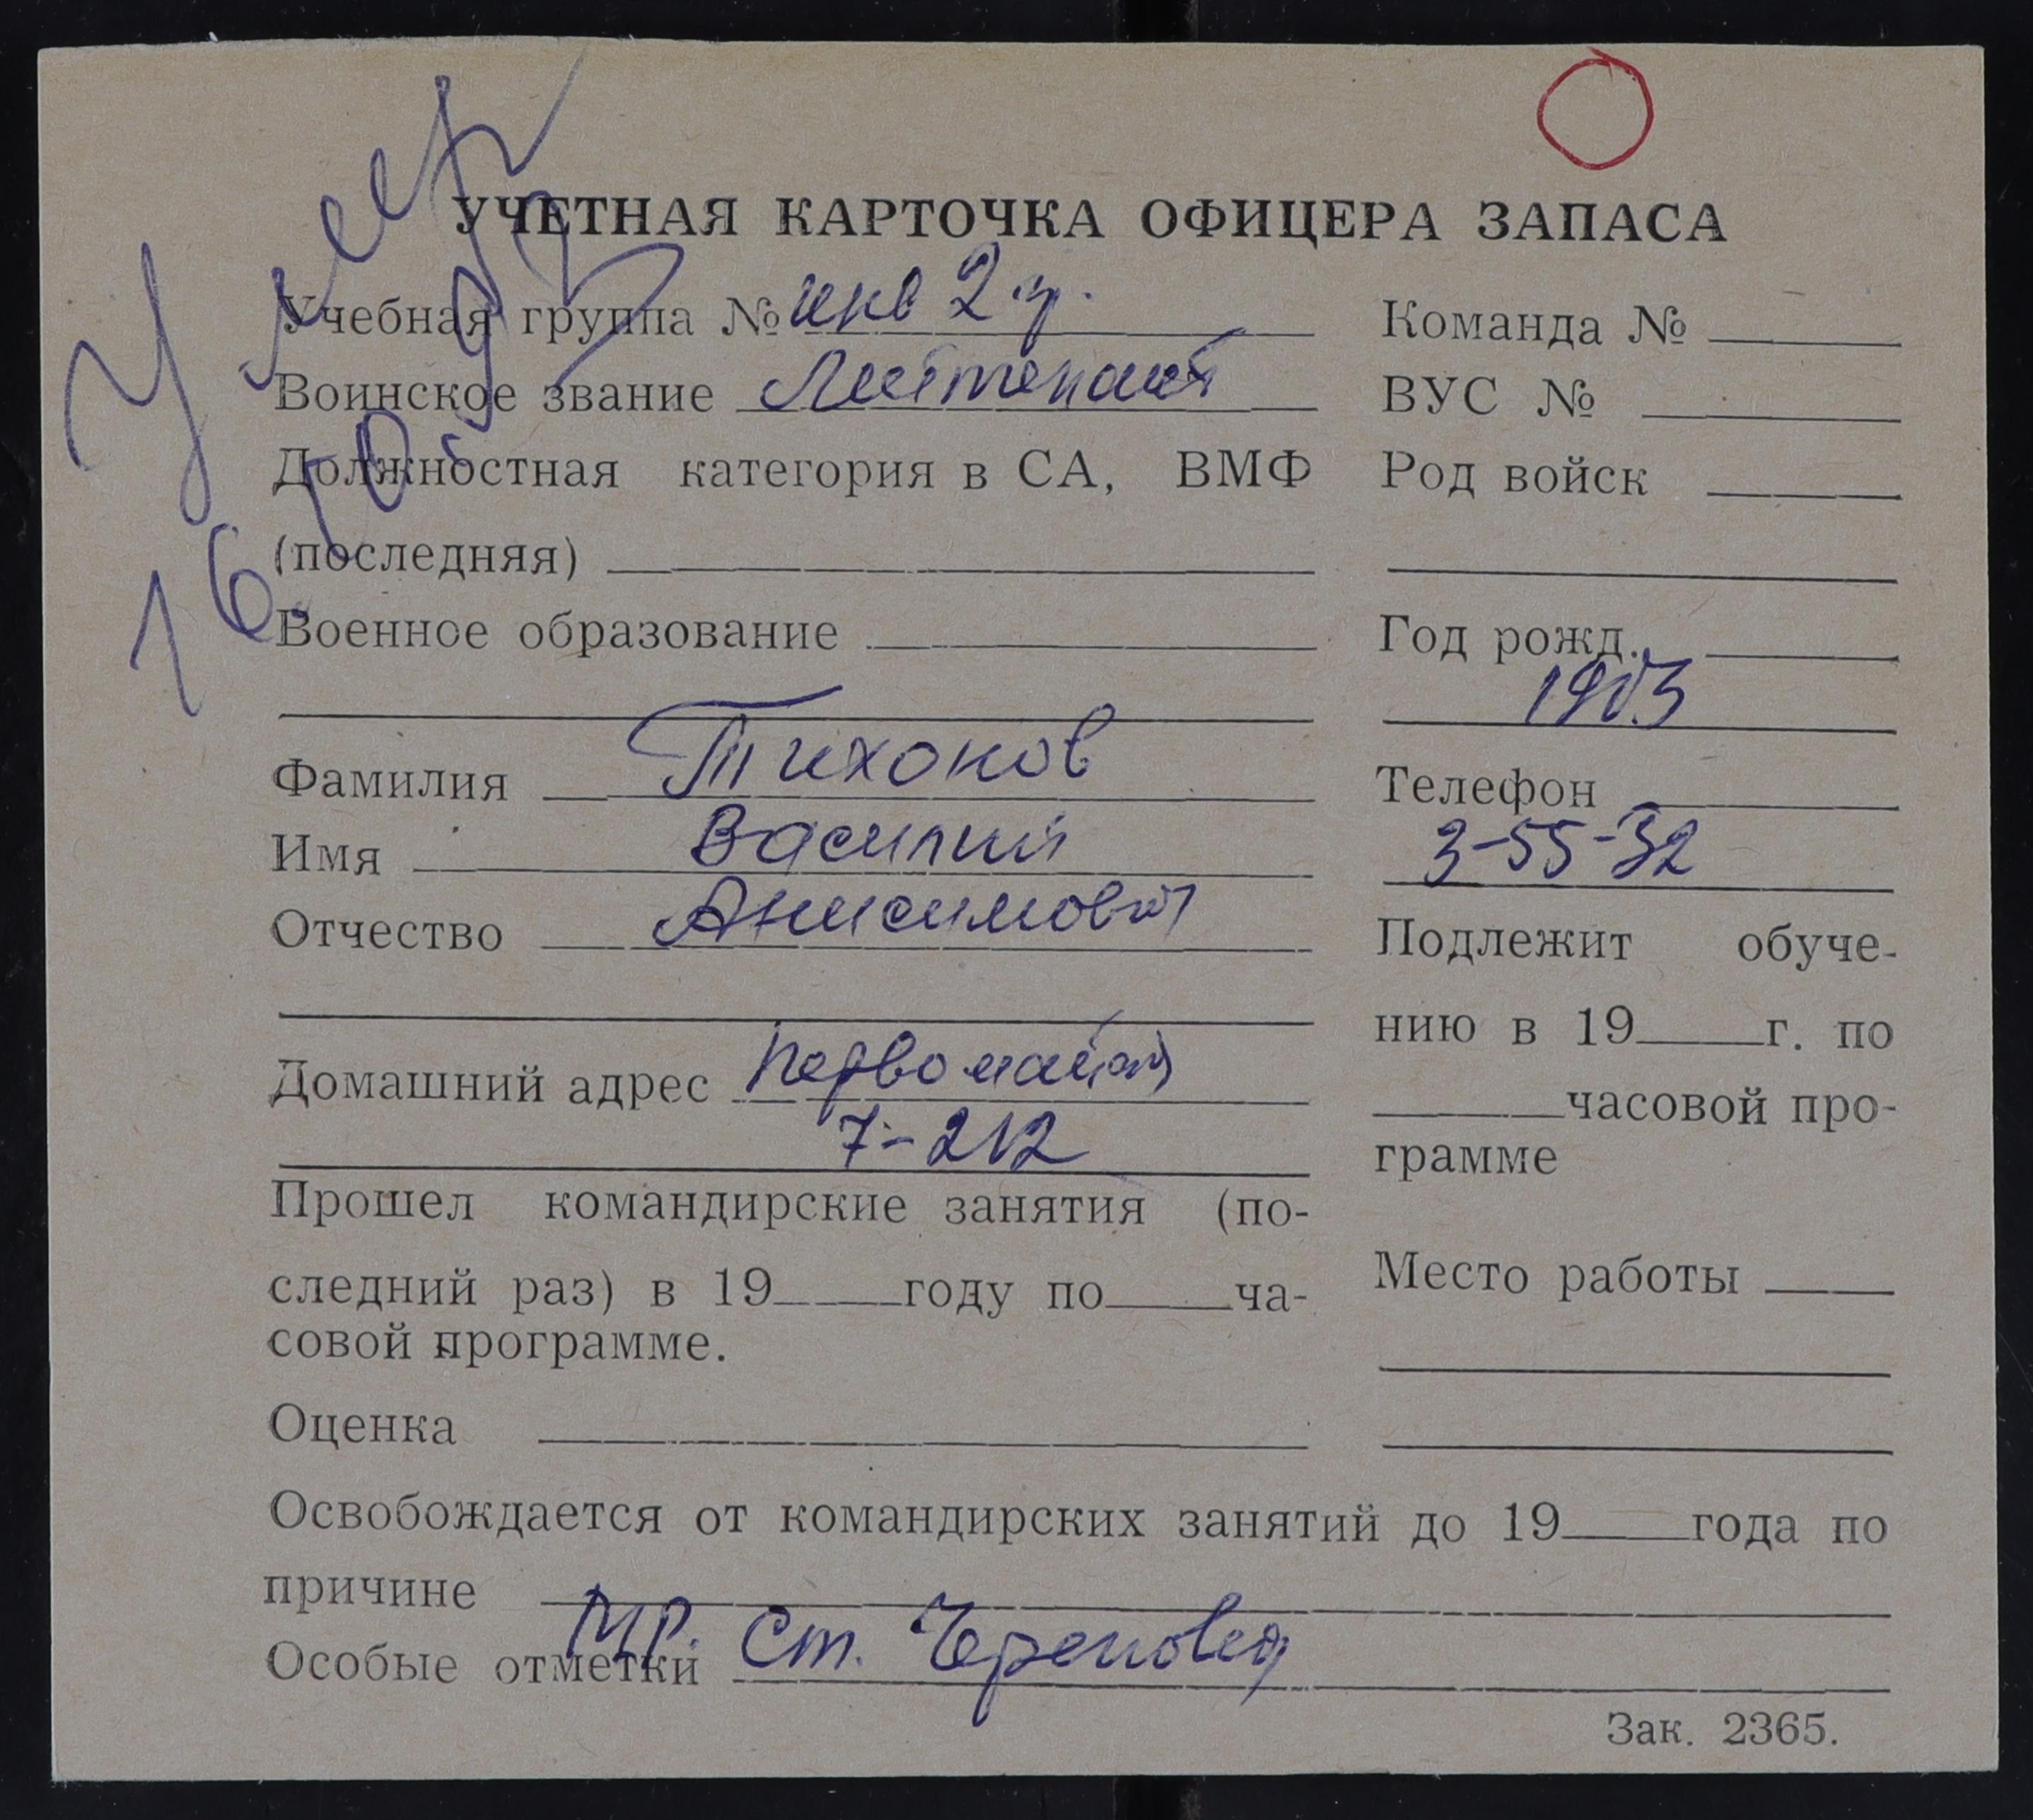 Умер
16.10.97
УЧЕТНАЯ КАРТОЧКА ОФИЦЕРА ЗАПАСА
Учебная группа № инв 2 гр.
Воинское звание Лейтенант
Должностная категория в СА, ВМФ
(последняя)
Военное образование
Фамилия Тихонов
Имя Василий
Отчество Анисимович
Домашний адрес Первомайская
7-212
Прошел командирские занятия (по-
следний раз) в 19 году по ча-
совой программе.
Оценка
Команда №
ВУС №
Род войск
Год рожд.
1903
Телефон
3-55-32
Подлежит обуче-
нию в 19 г. по
часовой про-
грамме
Место работы
Освобождается от командирских занятий до 19 года по
причине
Особые отметки МР. Ст. Череповец
Зак. 2365.